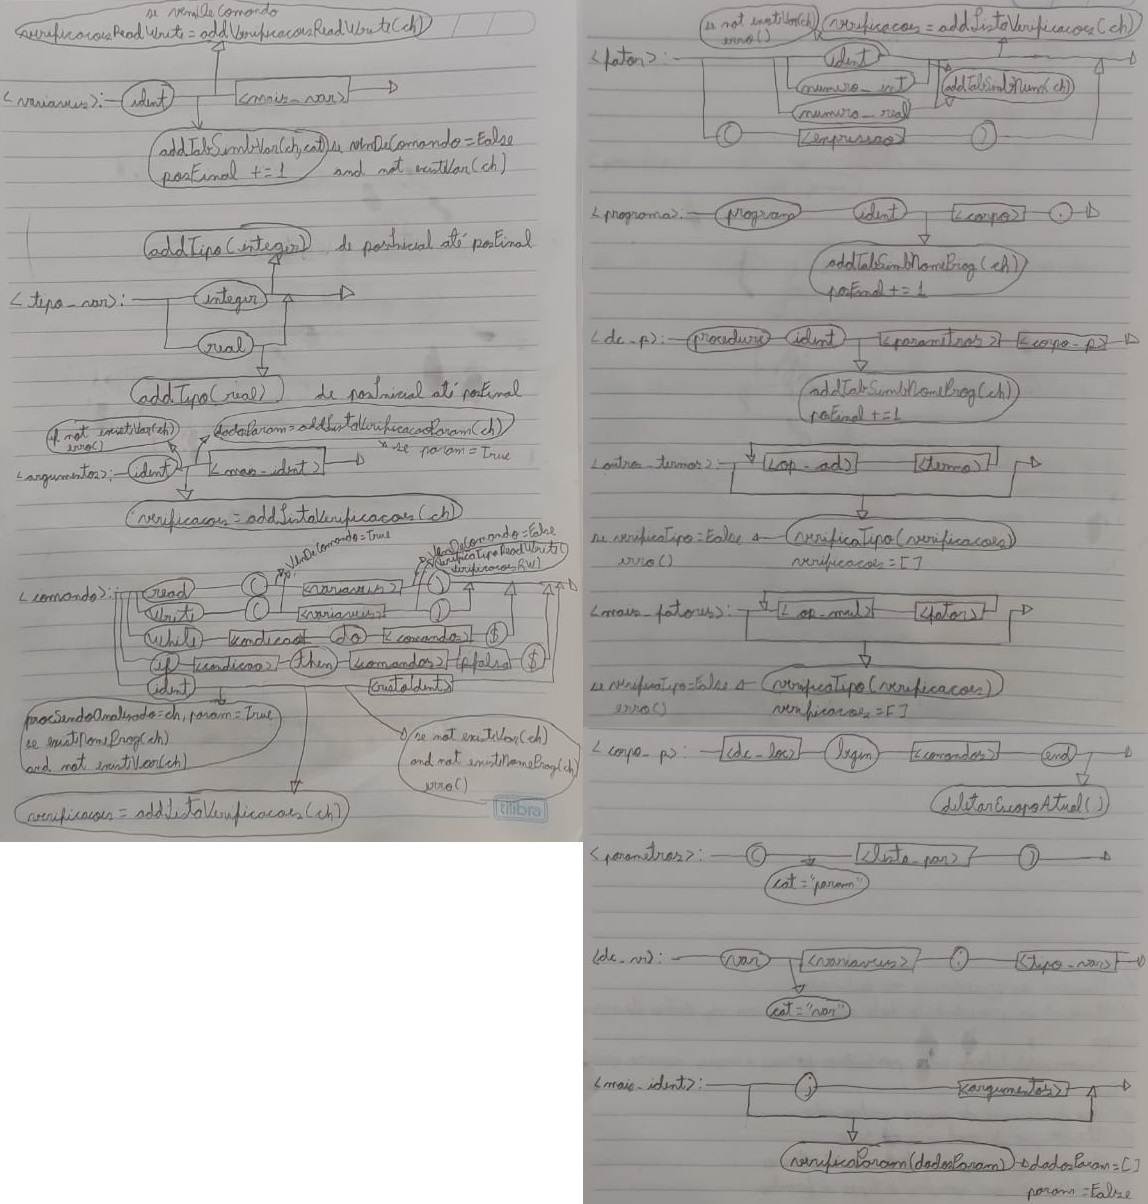 se vemDeComando
verificacoesReadWrite = addVerificacoesReadWrite(ch)
<variaveis>: ident <mais_var>
addTabSimbVar(ch, cat) se vemDeComando = False
posFinal += 1 and not existVar(ch)
addTipo(integer) de posInicial até posFinal
<tipo_var>: integer
real
addTipo(real) de posInicial até posFinal
if not existVar(ch)
erro()
dadosParam = addListaVerificacaoParam(ch)
se param = True
<argumentos>: ident <mais_ident>
verificacoes = addListaVerificacoes(ch)
VemDeComando = True
VemDeComando = False
VerificaTipoReadWrite(
verificacoesRW)
<comando>: read ( <variaveis> )
write ( <variaveis> )
while <condicao> do <comandos> $
if <condicao> then <comandos> <pfalsa> $
ident <restoIdent>
procSendoAnalisado = ch, param = True
se existNomeProg(ch)
and not existVar(ch)
se not existVar(ch)
and not existNomeProg(ch)
erro()
verificacoes = addListaVerificacoes(ch)
tilibra
se not existVar(ch)
erro()
verificacoes = addListaVerificacoes(ch)
<fator>: ident
numero_int
addTabSimbNum(ch)
numero_real
( <expressao> )
<programa>: program ident <corpo> .
addTabSimbNomeProg(ch)
posFinal += 1
<dc_p>: procedure ident <parametros> <corpo_p>
addTabSimbNomeProg(ch)
posFinal += 1
<outros_termos>: <op_ad> <termo>
se verificaTipo = False verificaTipo(verificacoes)
erro() verificacoes = []
<mais_fatores>: <op_mul> <fator>
se verificaTipo = False verificaTipo(verificacoes)
erro() verificacoes = []
<corpo_p>: <dc_loc> begin <comandos> end
deletarEscopoAtual()
<parametros>: ( <lista_par> )
cat = "param"
<dc_v>: var <variaveis> : <tipo_var>
cat = "var"
<mais_ident>: ; <argumentos>
verificaParam(dadosParam) dadosParam = []
param = False